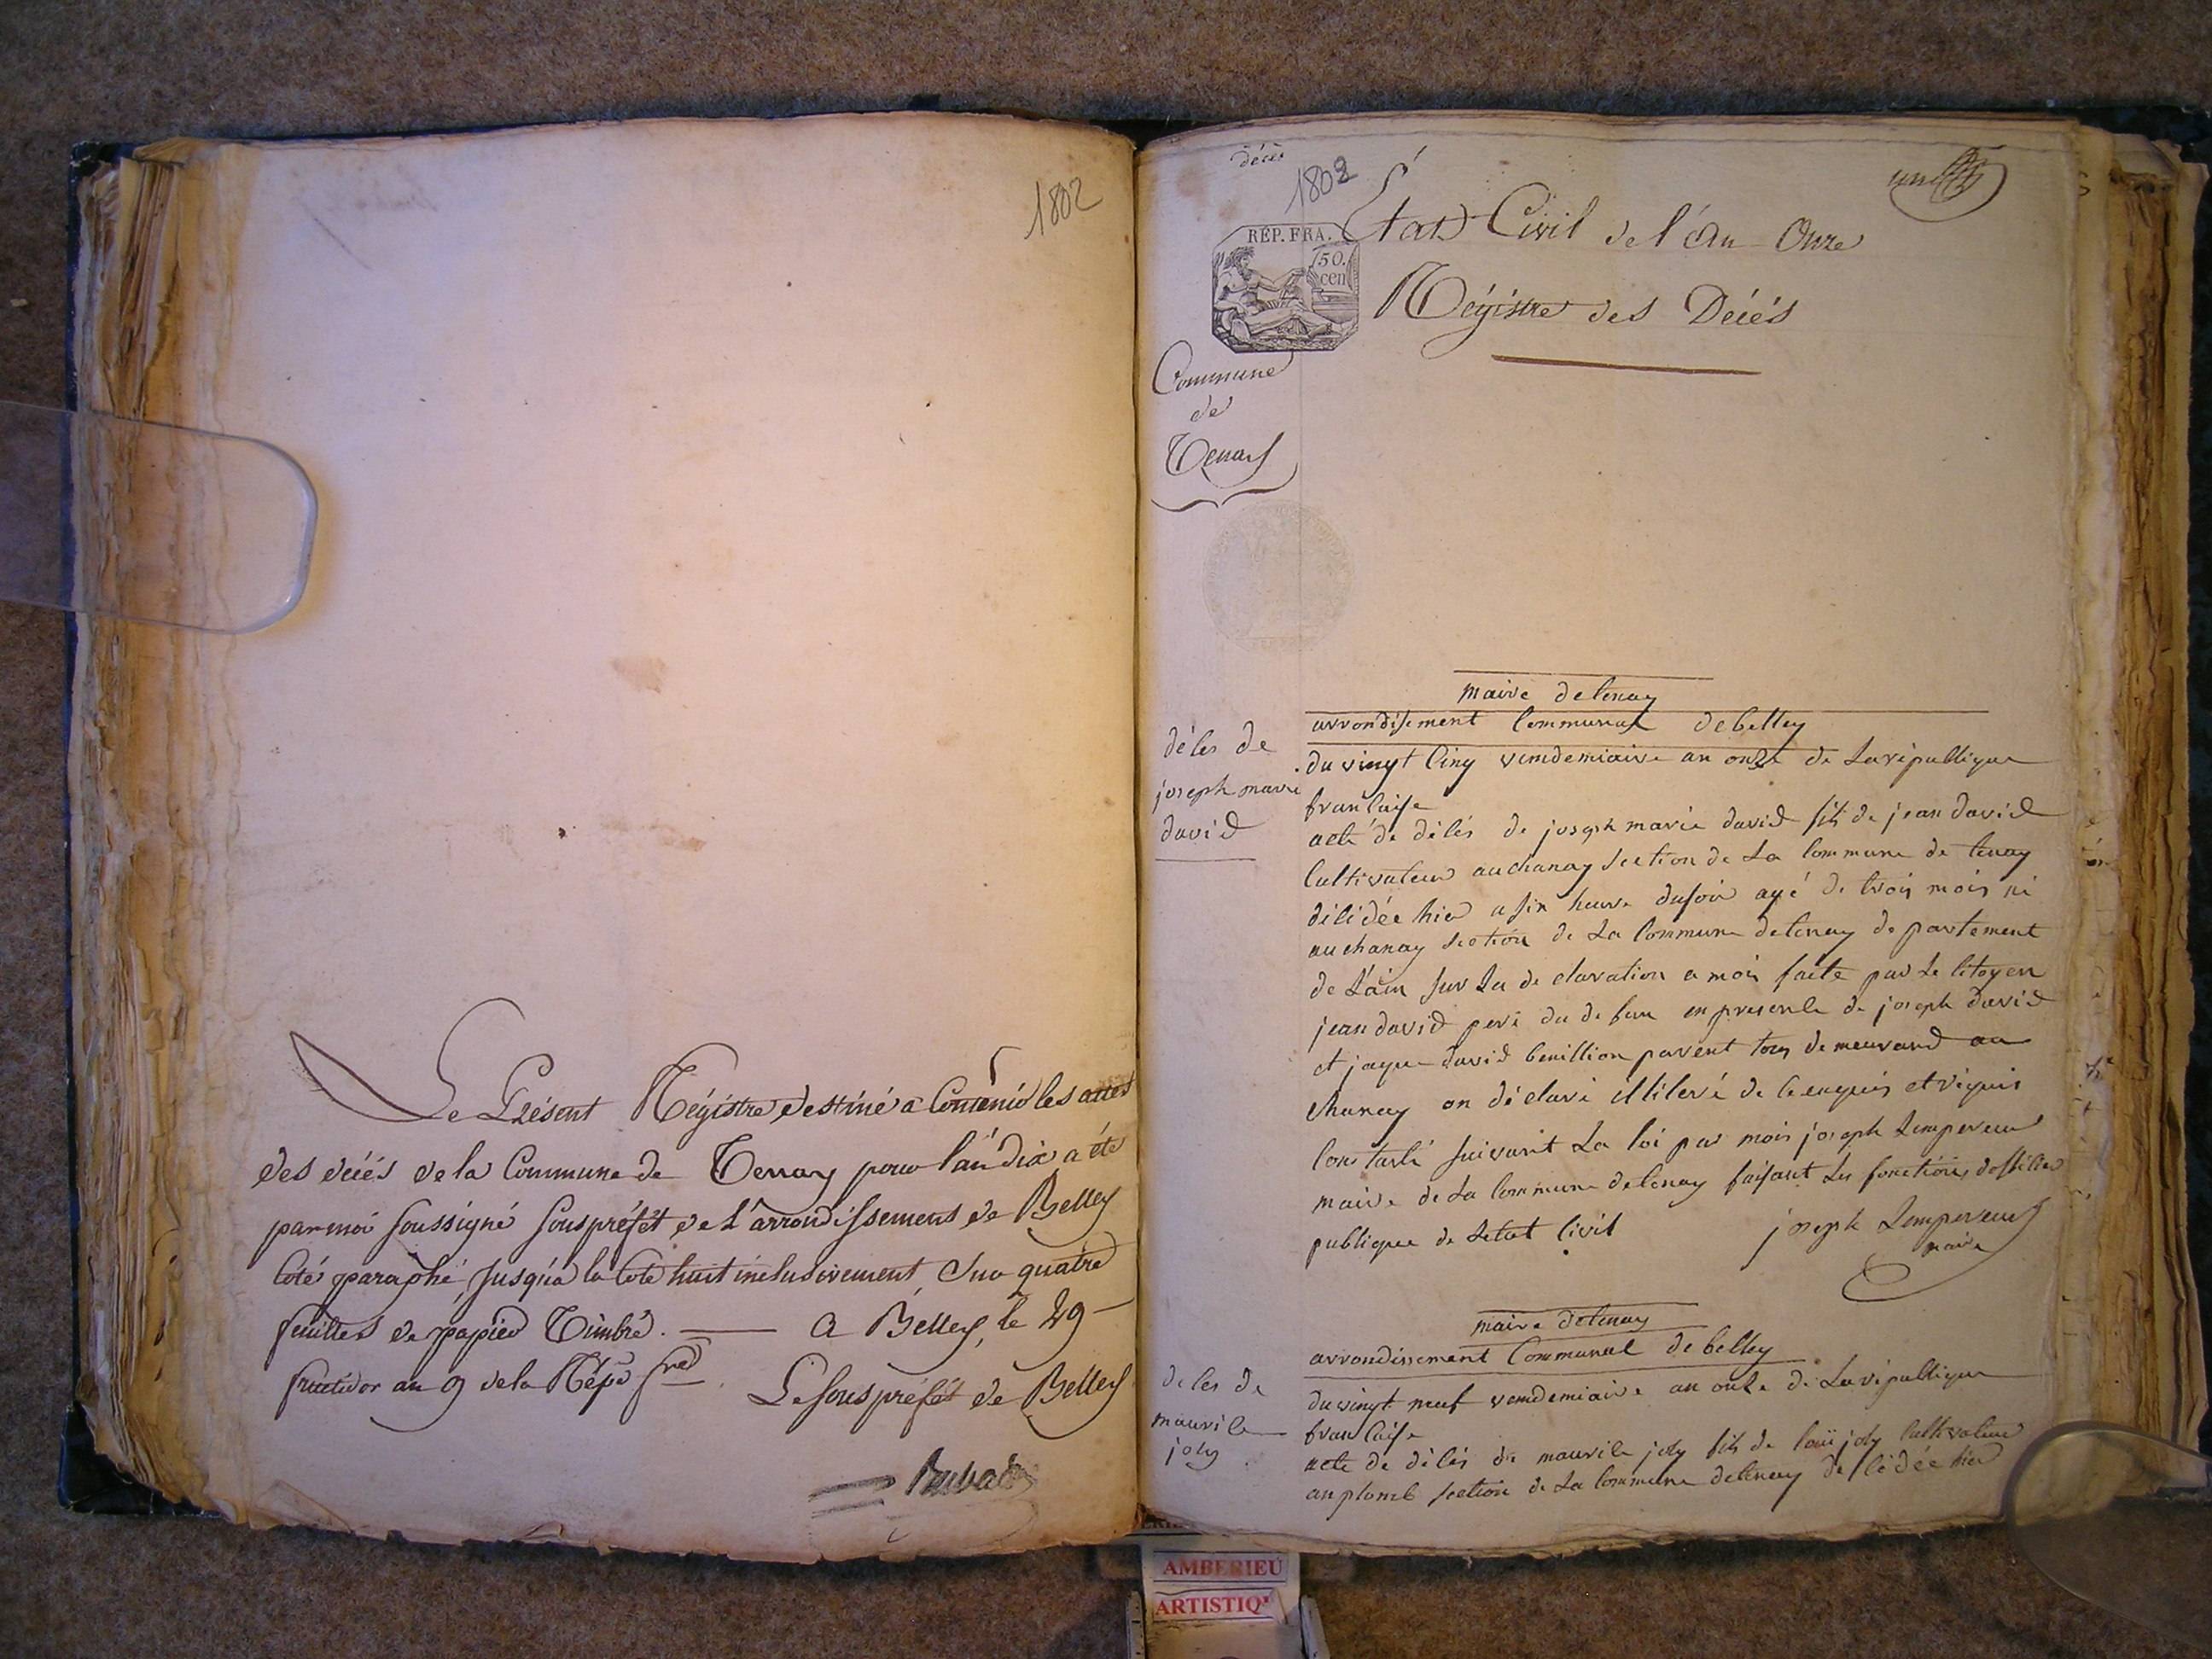 1802
Le Présent Régistre destiné a Contenir les actes
des décés de la Commune de Tenay pour l'an dix a été
par moi soussigné souspréfét de L'arrondissement de Belley
coté, paraphé, jusqu'a la cote huit inclusivement, sur quatre
feuilles de papier Timbré. — A Belley, le 29
fructidor an 9 de la Rép. fse
Le souspréfét de Belley
décès
1802
un
État Civil de l'an Onze
RÉP. FRA.
50.
cen
Régistre des Décés
Commune
de
Tenay
maire de tenay
arrondisement Communal de belley
décés de
joseph marie
david
du vingt cinq vemdemiaire an onze de La république
francaise
acte de décés de joseph marie david fils de jean david
cultivateur au chanay section de La commune de tenay
décédée hier a six heure du soir agé de trois mois né
au chanay section de La commune de tenay departement
de L'ain sur La declaration a moi faite par Le citoyen
jean david pere du de funt en presence de joseph david
et jaque david parent tous demeurand au
chanay on déclaré
constaté suivant La loi par moi joseph Lempereur
maire de La commune de tenay faisant Les fonctions dofficier
publique de Letat civil
joseph Lempereur
maire
maire de tenay
arrondissement Communal de belley
deces de
maurice
joly
du vingt neuf vemdemiaire an onze de La république
francaise
acte de décés de maurice joly fils de louï joly cultivateur
au plomb section de La commune de tenay de cédée hier
AMBERIEU
ARTISTIQ